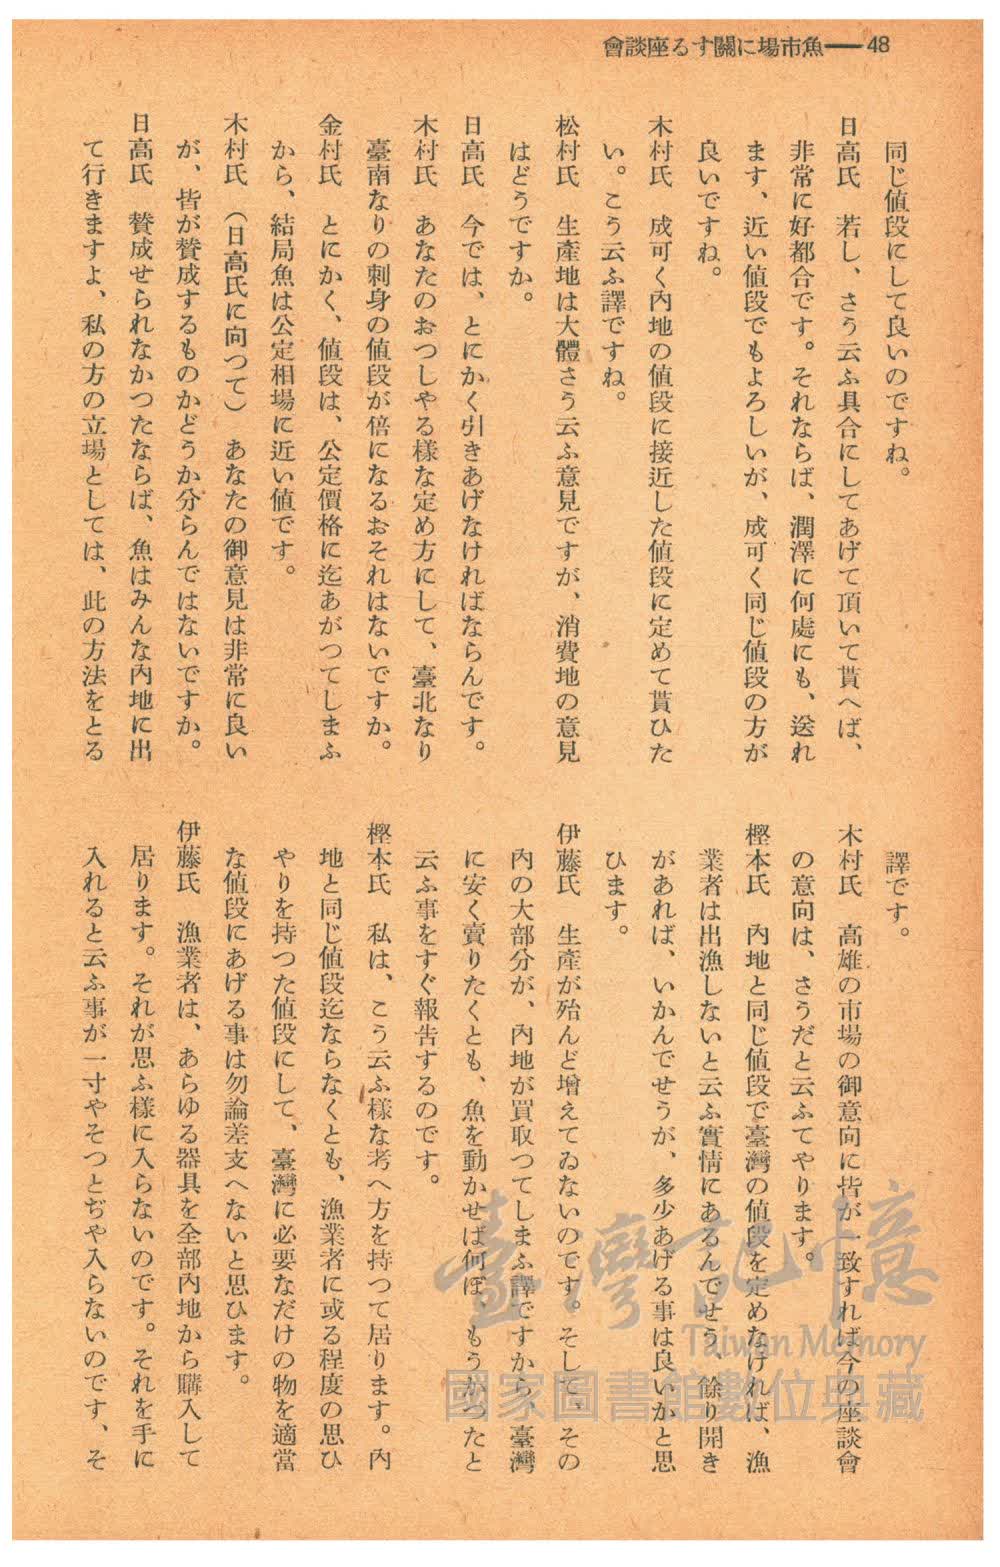 48——魚市場に關する座談會
同じ値段にして良いのですね。
日高氏　若し、さう云ふ具合にしてあげて頂いて貰へば、
非常に好都合です。それならば、潤澤に何處にも、送れ
ます、近い値段でもよろしいが、成可く同じ値段の方が
良いですね。
木村氏　成可く內地の値段に接近した値段に定めて貰ひた
い。こう云ふ譯ですね。
松村氏　生產地は大體さう云ふ意見ですが、消費地の意見
はどうですか。
日高氏　今では、とにかく引きあげなければならんです。
木村氏　あなたのおつしやる樣な定め方にして、臺北なり
臺南なりの刺身の値段が倍になるおそれはないですか。
金村氏　とにかく、値段は、公定價格に迄あがつてしまふ
から、結局魚は公定相場に近い値です。
木村氏　（日高氏に向つて）　あなたの御意見は非常に良い
が、皆が贊成するものかどうか分らんではないですか。
日高氏　贊成せられなかつたならば、魚はみんな內地に出
て行きますよ、私の方の立場としては、此の方法をとる
譯です。
木村氏　高雄の市場の御意向に皆が一致すれば今の座談會
の意向は、さうだと云ふてやります。
樫本氏　內地と同じ値段で臺灣の値段を定めなければ、漁
業者は出漁しないと云ふ實情にあるんでせう、餘り開き
があれば、いかんでせうが、多少あげる事は良いかと思
ひます。
伊藤氏　生產が殆んど增えてゐないのです。そして、その
內の大部分が、內地が買取つてしまふ譯ですから、臺灣
に安く賣りたくとも、魚を動かせば何ぼ、もうかつたと
云ふ事をすぐ報告するのです。
樫本氏　私は、こう云ふ樣な考へ方を持つて居ります。內
地と同じ値段迄ならなくとも、漁業者に或る程度の思ひ
やりを持つた値段にして、臺灣に必要なだけの物を適當
な値段にあげる事は勿論差支へないと思ひます。
伊藤氏　漁業者は、あらゆる器具を全部內地から購入して
居ります。それが思ふ樣に入らないのです。それを手に
入れると云ふ事が一寸やそつとぢや入らないのです、そ
臺灣記憶
Taiwan Memory
國家圖書館數位典藏